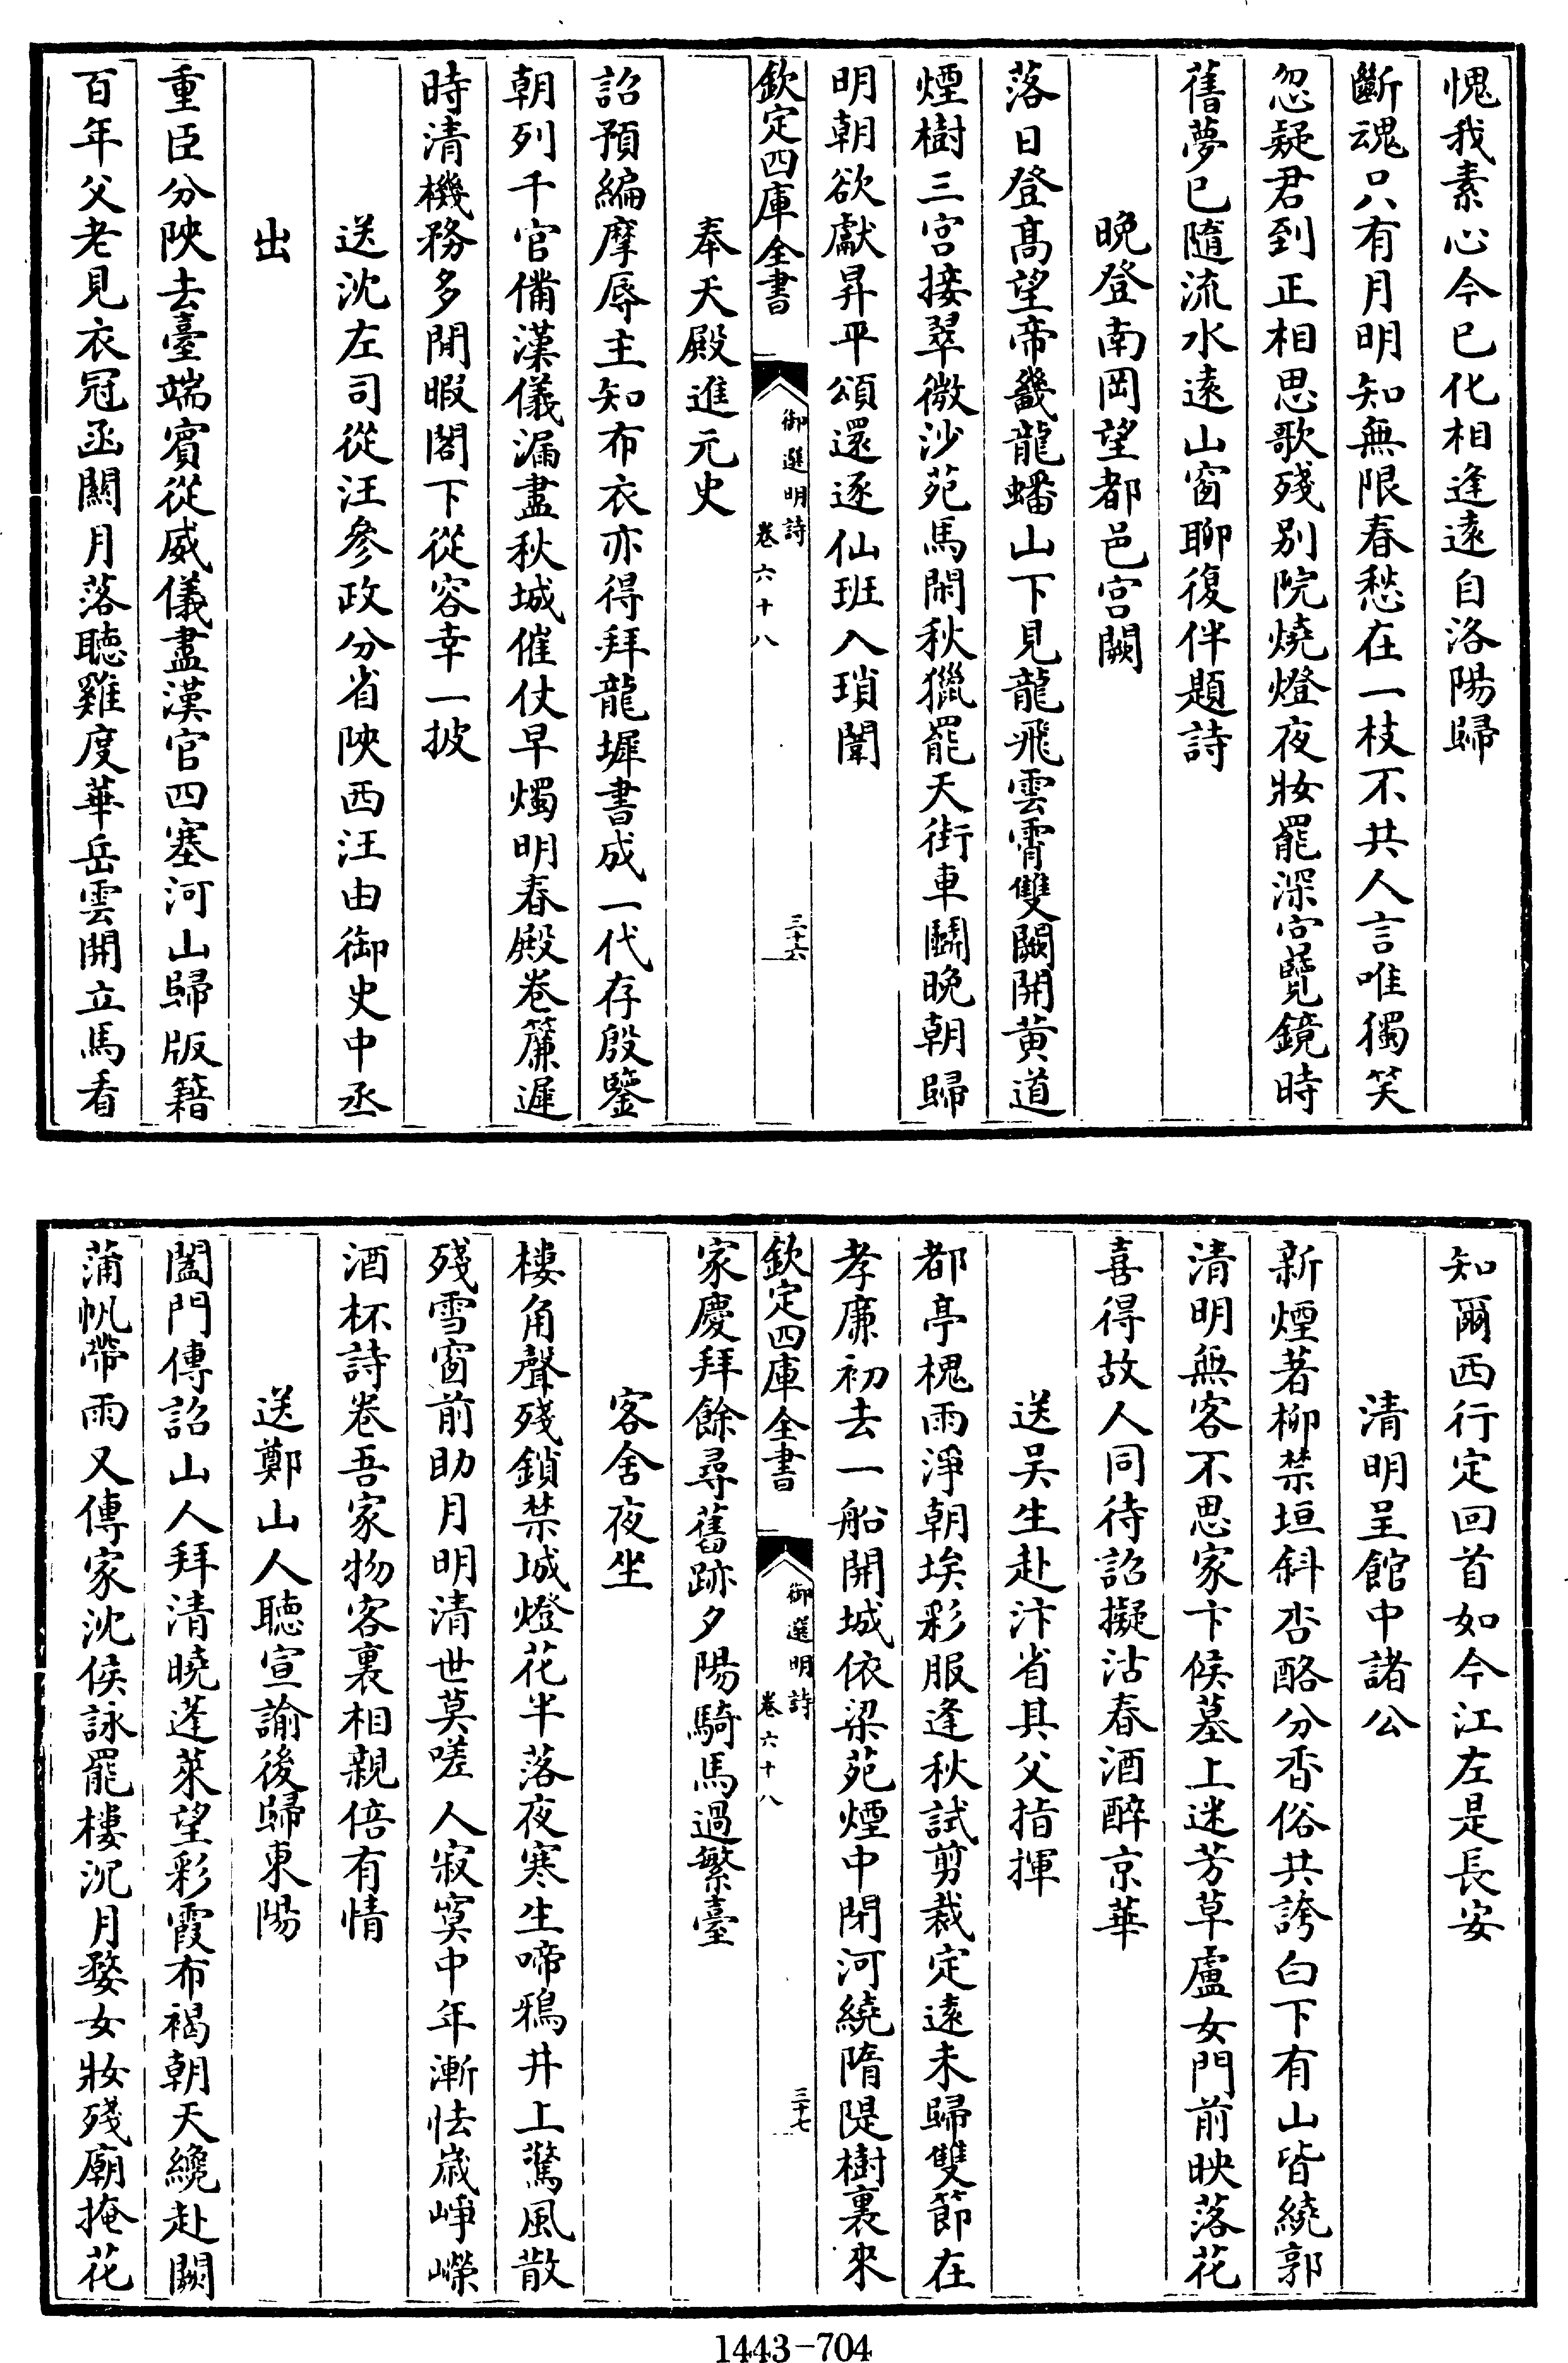 愧我素心今已化相逢遠自洛陽歸
斷魂只有月明知無限春愁在一枝不共人言唯獨笑
忽疑君到正相思歌殘别院燒燈夜妝罷深宫覽鏡時
舊夢已隨流水逺山窗聊復伴題詩
晚登南岡望都邑宫闕
落日登髙望帝畿龍蟠山下見龍飛雲霄雙闕開黄道
煙樹三宫接翠微沙苑馬閑秋獵罷天街車鬭晚朝歸
明朝欲獻昇平頌還逐仙班入瑣闈
欽定四庫全書
御選明詩
卷六十八
三十六
奉天殿進元史
詔預編摩辱主知布衣亦得拜龍墀書成一代存殷鑒
朝列千官備漢儀漏盡秋城催仗早燭明春殿卷簾遲
時清機務多閒暇閣下從容幸一披
送沈左司從汪參政分省陜西汪由御史中丞
出
重臣分陜去臺端賓從威儀盡漢官四塞河山歸版籍
百年父老見衣冠函闗月落聽雞度華岳雲開立馬看
知爾西行定回首如今江左是長安
清明呈館中諸公
新煙著柳禁垣斜杏酪分香俗共誇白下有山皆繞郭
清明無客不思家卞侯墓上迷芳草盧女門前映落花
喜得故人同待詔擬沽春酒醉京華
送吴生赴汴省其父指揮
都亭槐雨淨朝埃彩服逢秋試剪裁定遠未歸雙節在
孝亷初去一船開城依梁苑煙中閉河繞隋隄樹裏來
欽定四庫全書
御選明詩
卷六十八
三十七
家慶拜餘尋舊跡夕陽騎馬過繁臺
客舍夜坐
樓角聲殘鎖禁城燈花半落夜寒生啼鴉井上驚風散
殘雪窗前助月明清世莫嗟人寂寞中年漸怯歲崢嶸
酒杯詩卷吾家物客裏相親倍有情
送鄭山人聽宣諭後歸東陽
闔門傳詔山人拜清曉蓬萊望彩霞布褐朝天纔赴闕
蒲帆帶雨又傳家沈侯詠罷樓沉月婺女妝殘廟掩花
1443-704